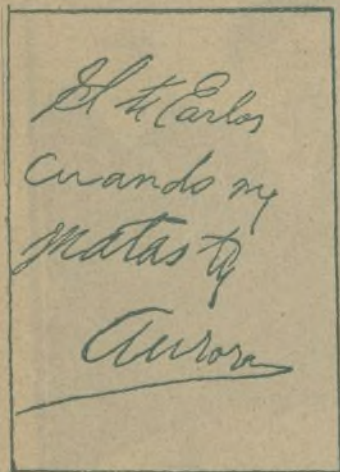 El ti Carlos
cuando my
matas ty
Aurora